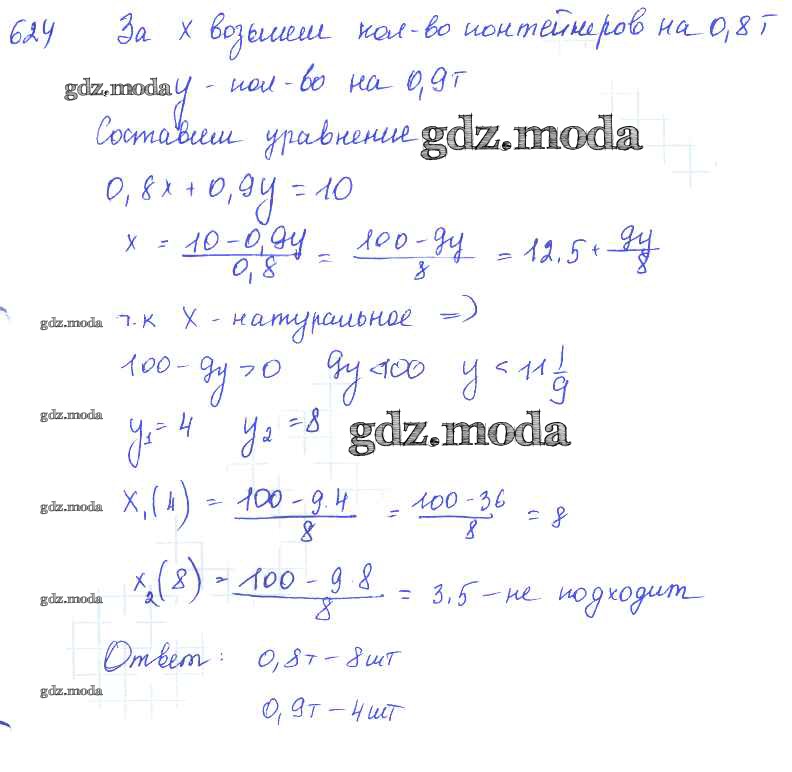 624 За x возьмем кол-во контейнеров на 0,8т
gdz.moda y - кол-во на 0,9т
Составим уравнение gdz.moda
0,8x + 0,9y = 10
x = (10 - 0,9y)/0,8 = (100 - 9y)/8 = 12.5 + 9y/8
gdz.moda т.к x - натуральное =>
100 - 9y > 0 9y < 100 y < 11 1/9
gdz.moda
y₁ = 4 y₂ = 8 gdz.moda
gdz.moda x₁(4) = (100 - 9·4)/8 = (100 - 36)/8 = 8
gdz.moda x₂(8) = (100 - 9·8)/8 = 3.5 - не подходит
Ответ: 0,8т - 8шт
gdz.moda
0,9т - 4шт